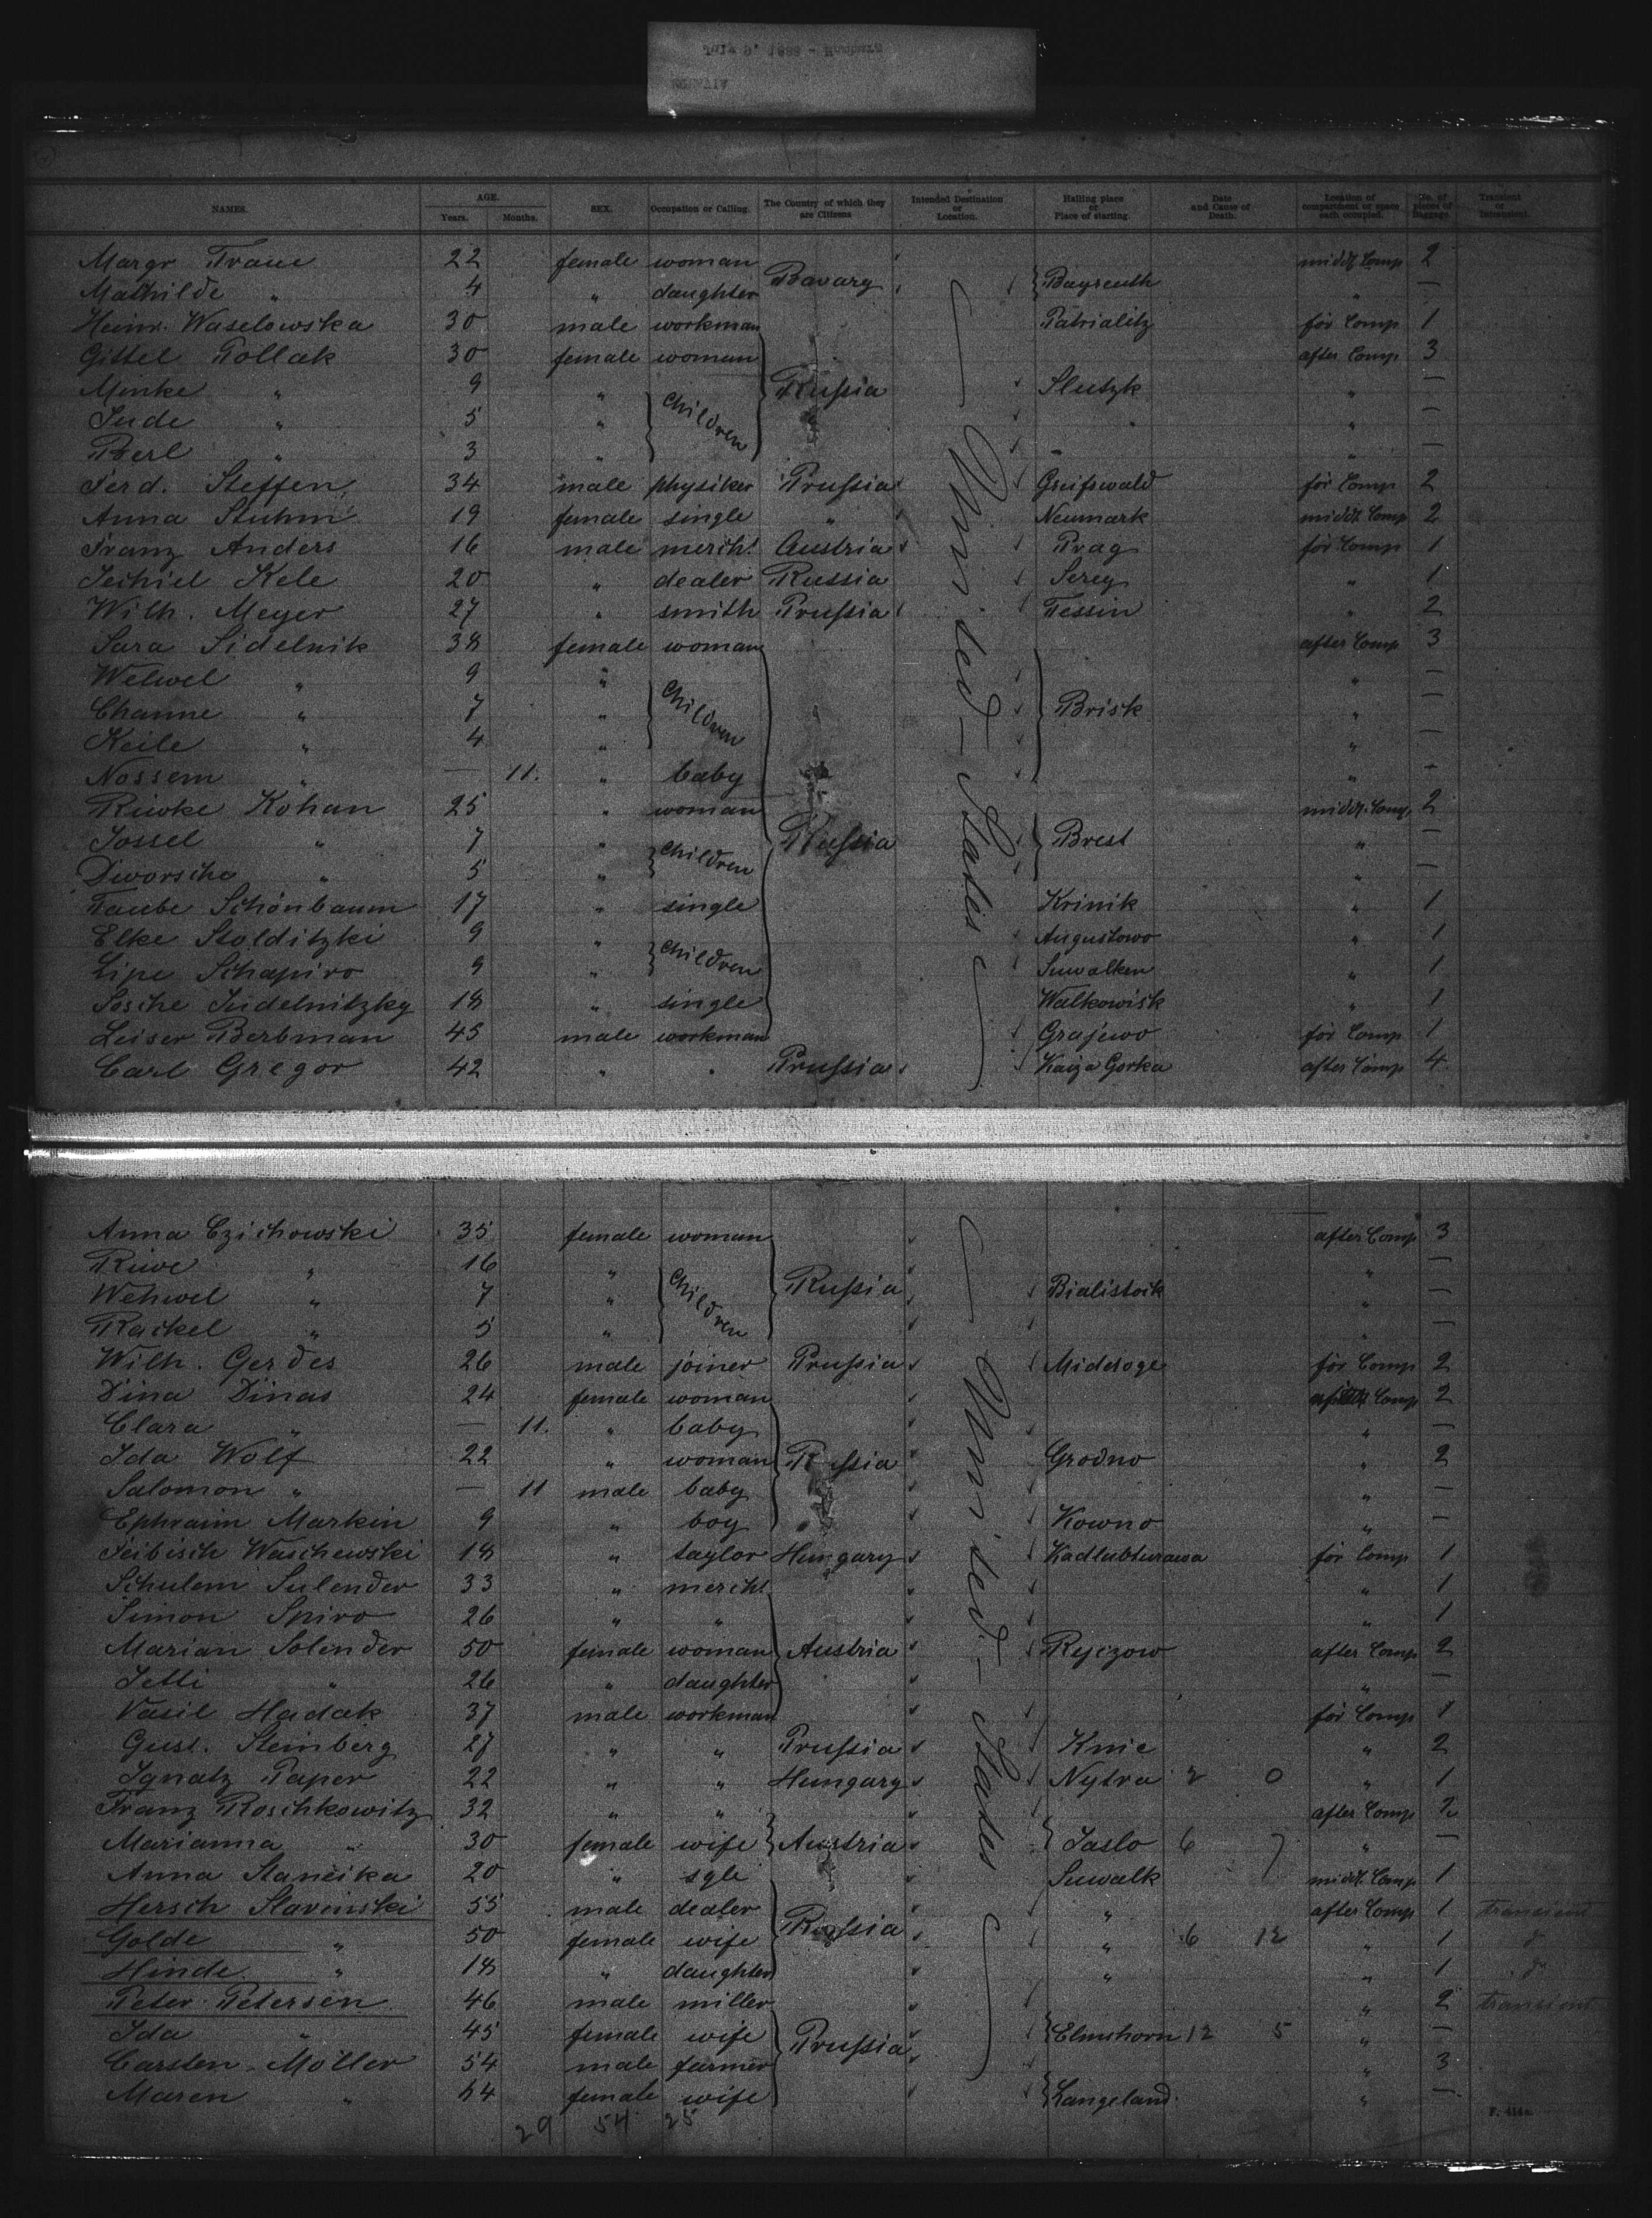 NAMES. AGE. Years. Months. SEX. Occupation or Calling. The Country of which they are Citizens Intended Destination or Location. Hailing place or Place of starting. Date and Cause of Death. Location of compartment or space each occupied. No. of pieces of Baggage. Transient or Intransient.
Margr Traue 22 female woman middt Comp 2
Mathilde " 4 " daughter Bavary Bayreuth " —
Heinr. Waselowska 30 male workman Patrialitz för Comp 1
Gittel Pollak 30 female woman after Comp 3
Minke " 9 " children Russia Slutzk " —
Jude " 5 " " " —
Berl " 3 " " " —
Ferd. Steffen 34 male physiker Prussia Greifswald för Comp 2
Anna Stuhm 19 female single " Neumark middt Comp 2
Franz Anders 16 male mercht Austria Prag för Comp 1
Jechiel Kele 20 " dealer Russia Serey " 1
Wilh. Meyer 27 " smith Prussia Tessin " 2
Sara Sidelnik 38 female woman after Comp 3
Welwel " 9 " children " —
Channe " 7 " Brisk " —
Keile " 4 " " —
Nossem " — 11. " baby " —
Riwke Kohan 25 " woman middt. Comp. 2
Jossel " 7 " children Russia Brest " —
Dworsche " 5 " " —
Taube Schönbaum 17 " single Krinik " 1
Elke Stolditzki 9 " children Augustowo " 1
Lipe Schapiro 9 " Suwalken " 1
Sosche Judelnitzky 18 " single Walkowisk " 1
Leiser Berbman 45 male workman Grajewo för Comp 1
Carl Gregor 42 " " Prussia Kaiza Gorka after Comp 4
United States
Anna Czichowski 35 female woman after Comp 3
Riwe " 16 " children " —
Wehwel " 7 " Russia Bialistock " —
Rackel " 5 " " —
Wilh. Gerdes 26 male joiner Prussia Middoge för Comp 2
Dina Dinas 24 female woman Comp 2
Clara " — 11. " baby " —
Ida Wolf 22 " woman Russia Grodno " 2
Salomon " — 11 male baby " —
Ephraim Markin 9 " boy Kowno " —
Feibisch Waschewski 18 " taylor Hungary Kadlubturawa för Comp 1
Schulem Sulender 33 " mercht " " 1
Simon Spiro 26 " " " 1
Marian Solender 50 female woman Austria Ryczow after Comp 2
Jetti " 26 " daughter " —
Vasil Hadak 37 male workman för Comp 1
Gust. Steinberg 27 " " Prussia Knie " 2
Ignatz Paper 22 " " Hungary Nytra 2 0 " 1
Franz Roschkowitz 32 " " after Comp 2
Marianna " 30 female wife Austria Jaslo 6 7 " —
Anna Stancika 20 " sgle " Suwalk middt. Comp 1
Hersch Slavinski 55 male dealer " after Comp 1 transient
Golde " 50 female wife Russia " 6 12 " 1
Hinde " 18 " daughter " " 1
Peter Petersen 46 male miller " 2 transient
Ida " 45 female wife Prussia Elmshorn 12 5 " —
Carsten Möller 54 male farmer " 3
Maren " 54 female wife Langeland " —
United States
29 54 25
F. 414a.